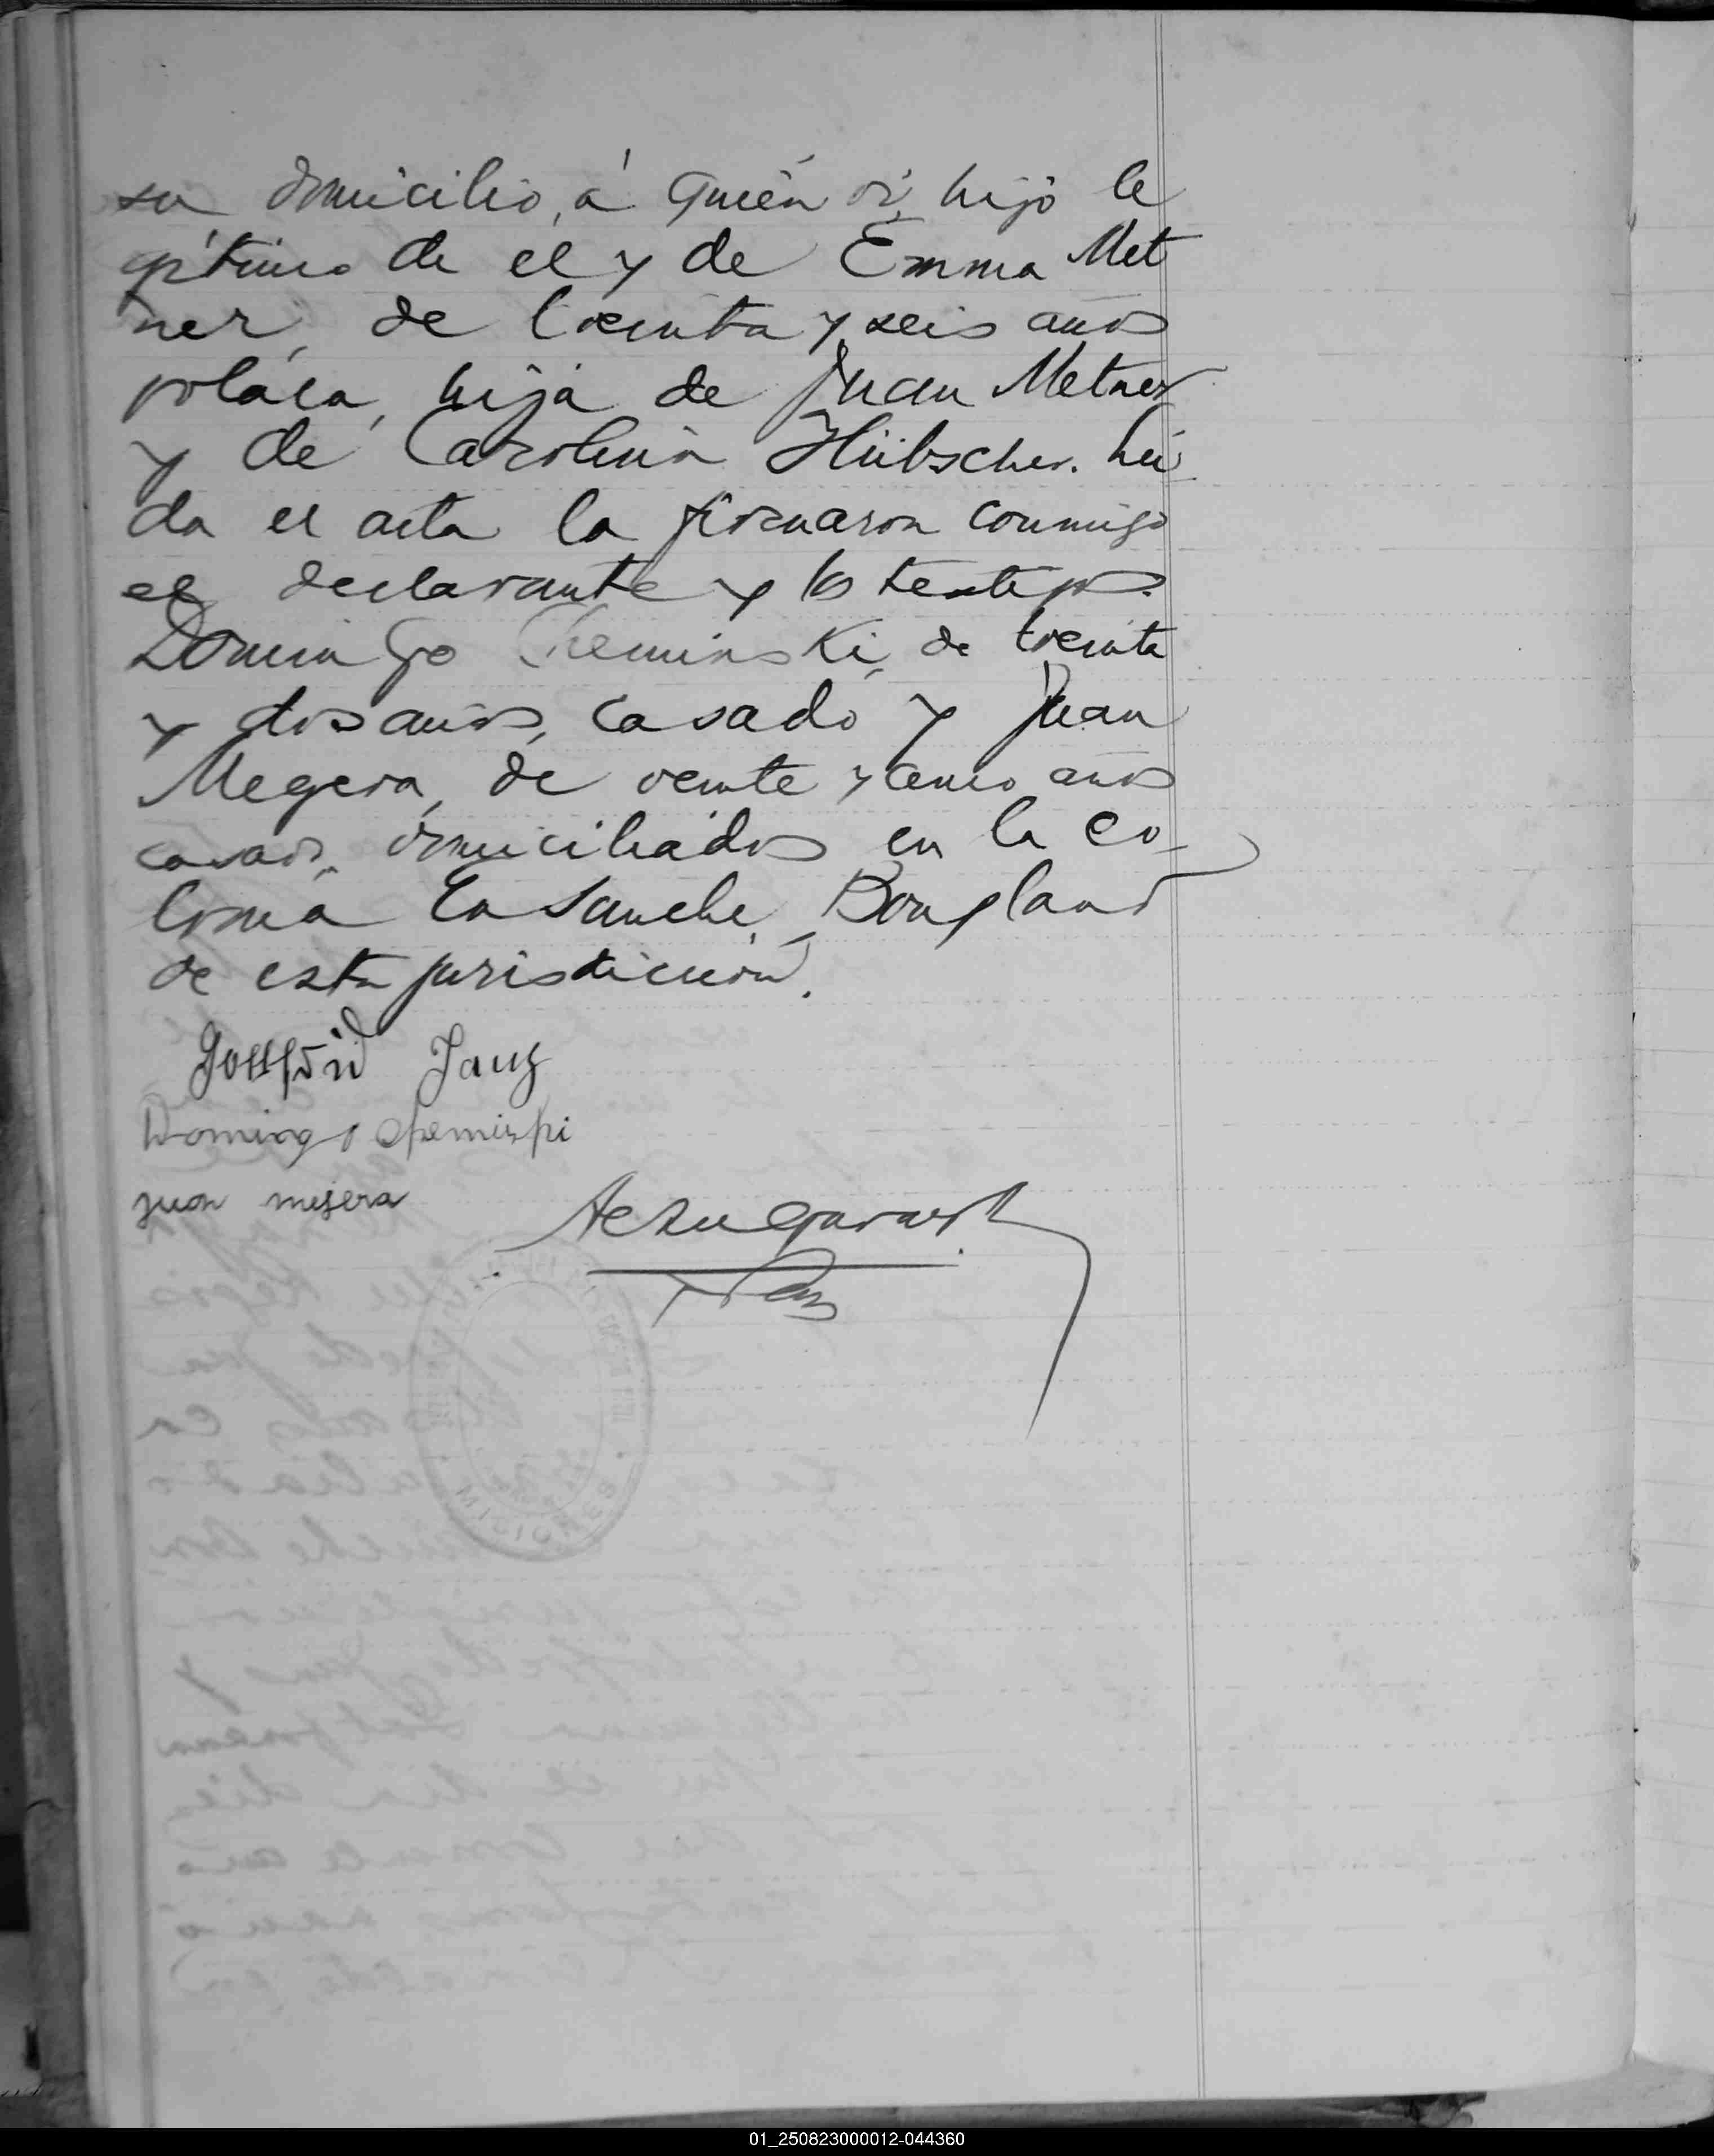 su domicilio, á quién ví, hijo le
gítimo de él y de Emma Met
ner, de treinta y seis años
polaca, hija de Juan Metner
y de Carolina Hübscher. Leí
da el acta la firmaron conmigo
el declarante y los testigos
Domingo Cheminski, de treinta
y dos años, casado y Juan
Megera, de veinte y cinco años
casado, domiciliados en la co-
lonia Ensanche Bonpland
de esta jurisdicción.
Gottfrid Janz
Domingo
juan mejera
MISIONES
01_250823000012-044360